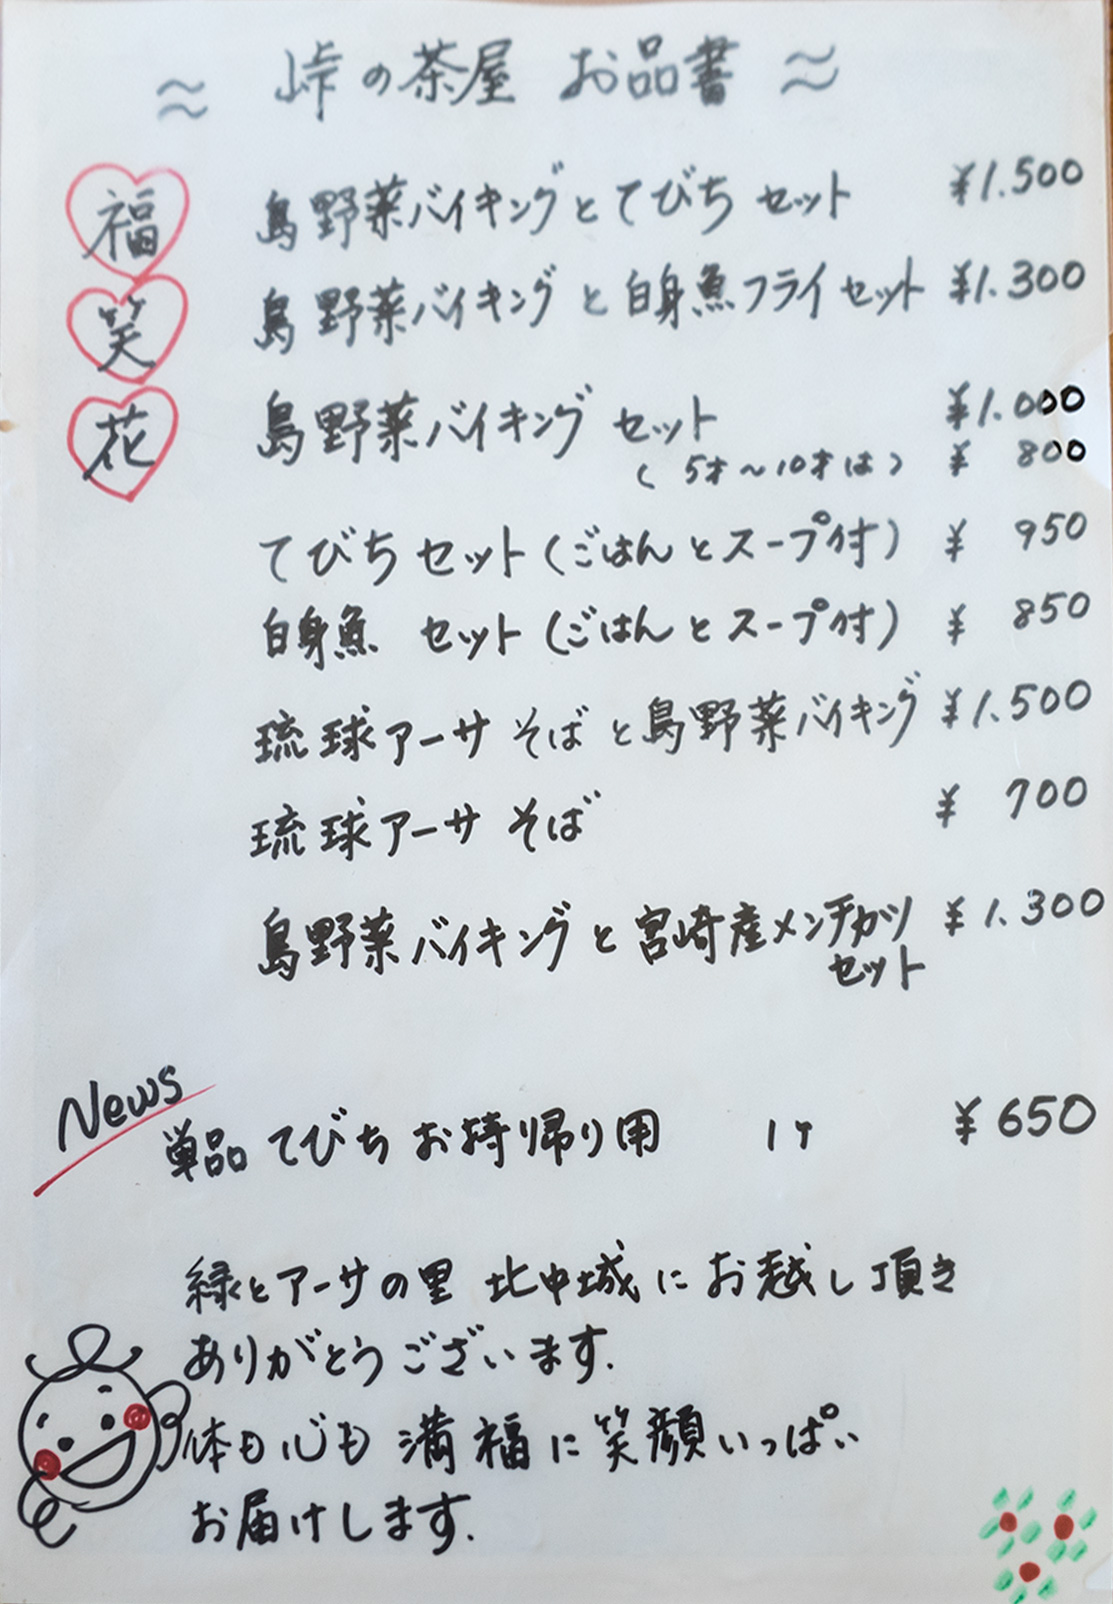 ≈ 峠の茶屋 お品書 ≈
福 島野菜バイキングとてびち セット ¥1.500
笑 島野菜バイキングと白身魚フライセット ¥1.300
花 島野菜バイキング セット ¥1.000
(5才～10才は) ¥ 800
てびちセット(ごはんとスープ付) ¥ 950
白身魚 セット(ごはんとスープ付) ¥ 850
琉球アーサそばと島野菜バイキング ¥1.500
琉球アーサそば ¥ 700
島野菜バイキングと宮崎産メンチカツ ¥1.300
セット
News
単品てびちお持り帰り用 1ヶ ¥650
緑とアーサの里 北中城にお越し頂き
ありがとうございます.
体も心も満福に笑顔いっぱい
お届けします.